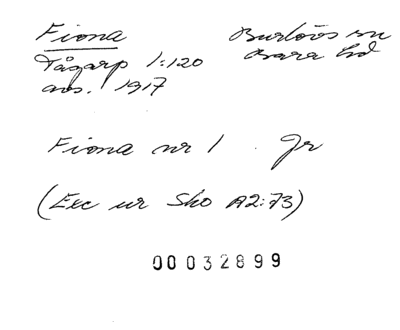 Fiona Burlövs sn
Tågarp 1:120 Bara hd
avs. 1917
Fiona nr 1 . Gr
(Exc ur Sko A2:73)
00032899